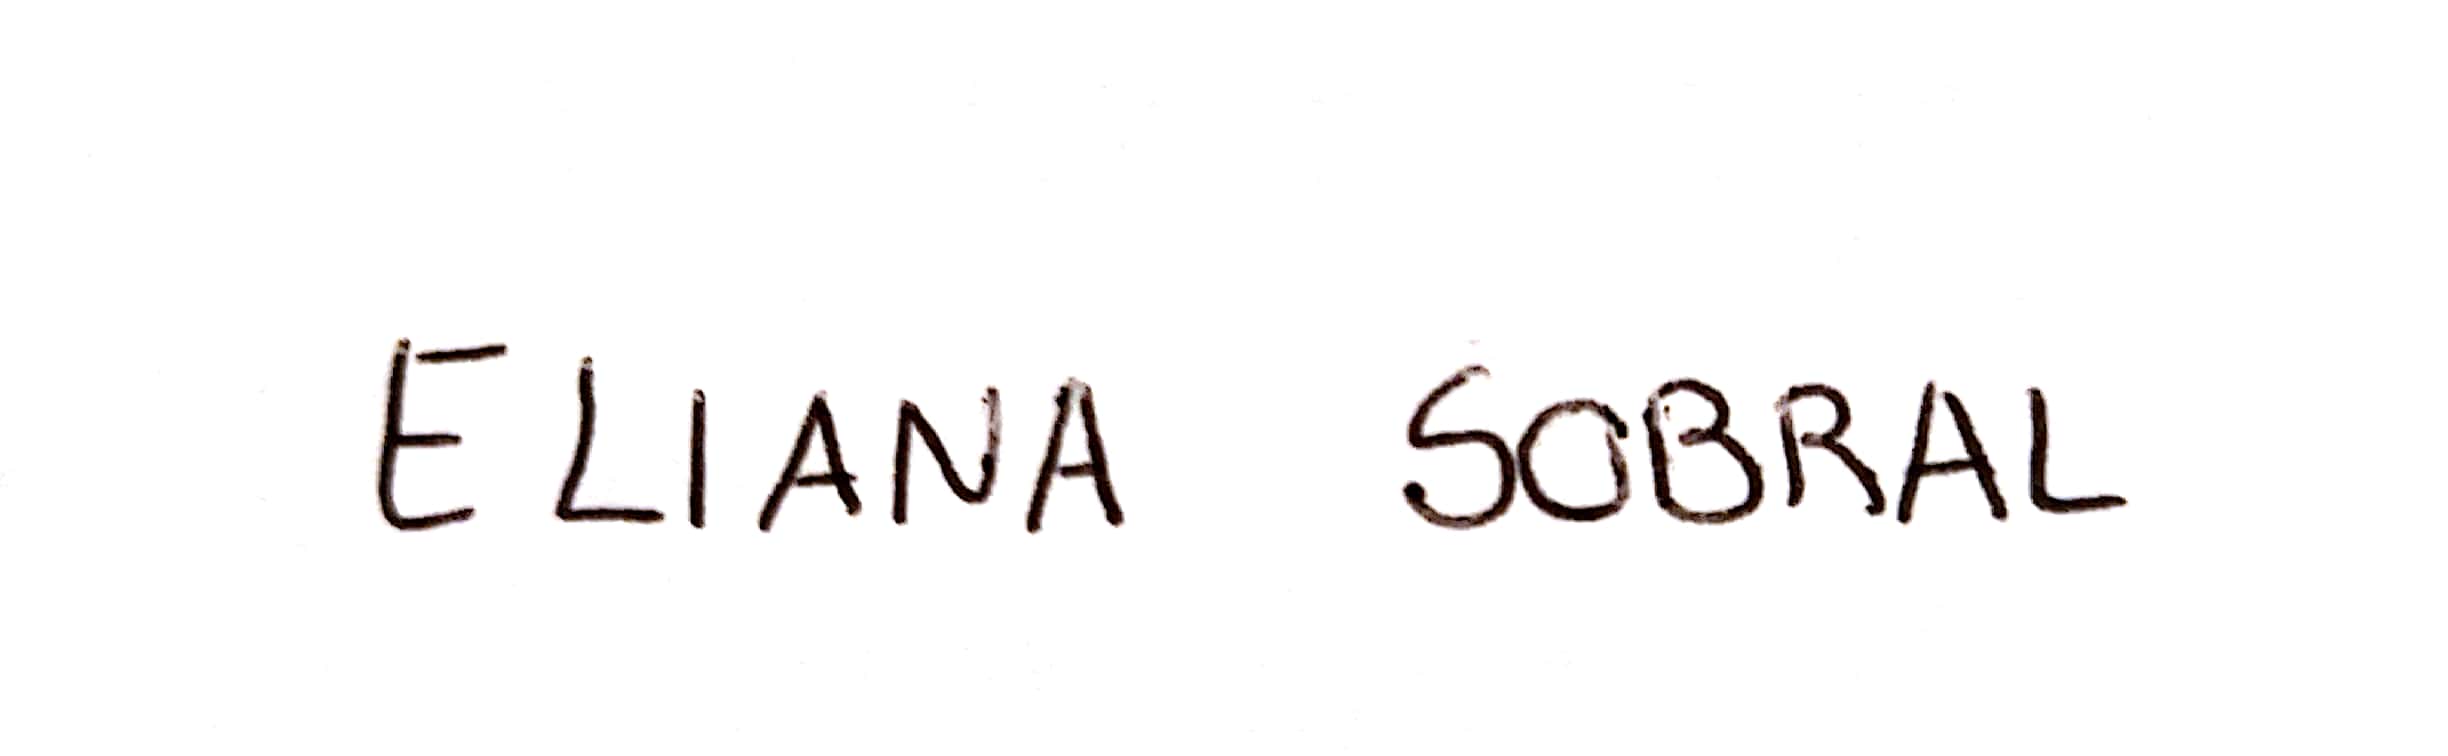 ELIANA SOBRAL